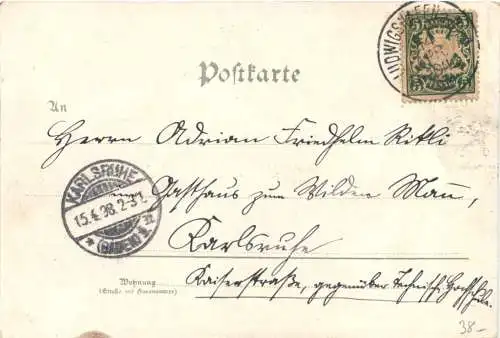 LUDWIGSHAFEN
Postkarte
An
Herrn Adrian Friedhelm Ritli
KARLSRUHE
15.4.98.2-3
(BADEN)
Gasthaus zum Wilden Mann,
Karlsruhe
Kaiserstraße, gegenüber Technisch. Hochschule.
Wohnung
(Straße und Hausnummer)
38-